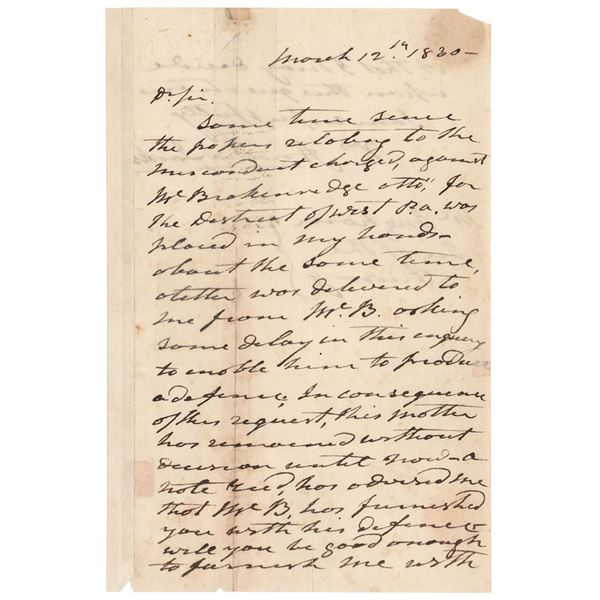 March 12.th 1830-
Dr Sir.
Some time since
the papers relating to the
misconduct charged, against
Mr Brakenredge atto,, for
the District of west Pa. was
placed in my hands-
about the same time,
a letter was delivered to
me from Mr. B. asking
some delay in this enquiry
to enable him to produce
a defence, In consequence
of this request, this matter
has remained without
decision until now- a
note recd, has advised me
that Mr B. has furnished
you with his defence-
will you be good enough
to furnish me with